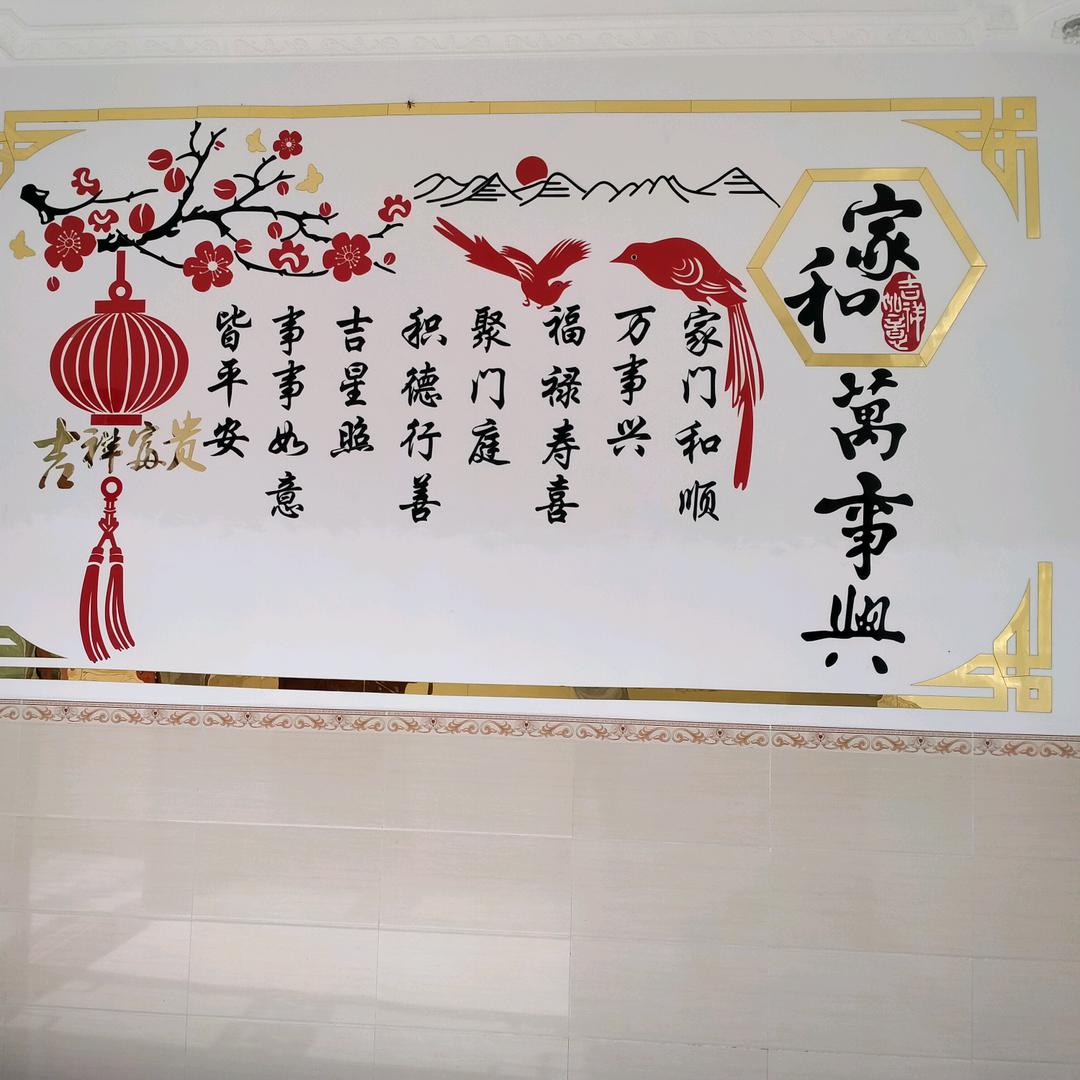 家和萬事興
吉祥如意
家门和顺
万事兴
福禄寿喜
聚门庭
积德行善
吉星照
事事如意
皆平安
吉祥富贵